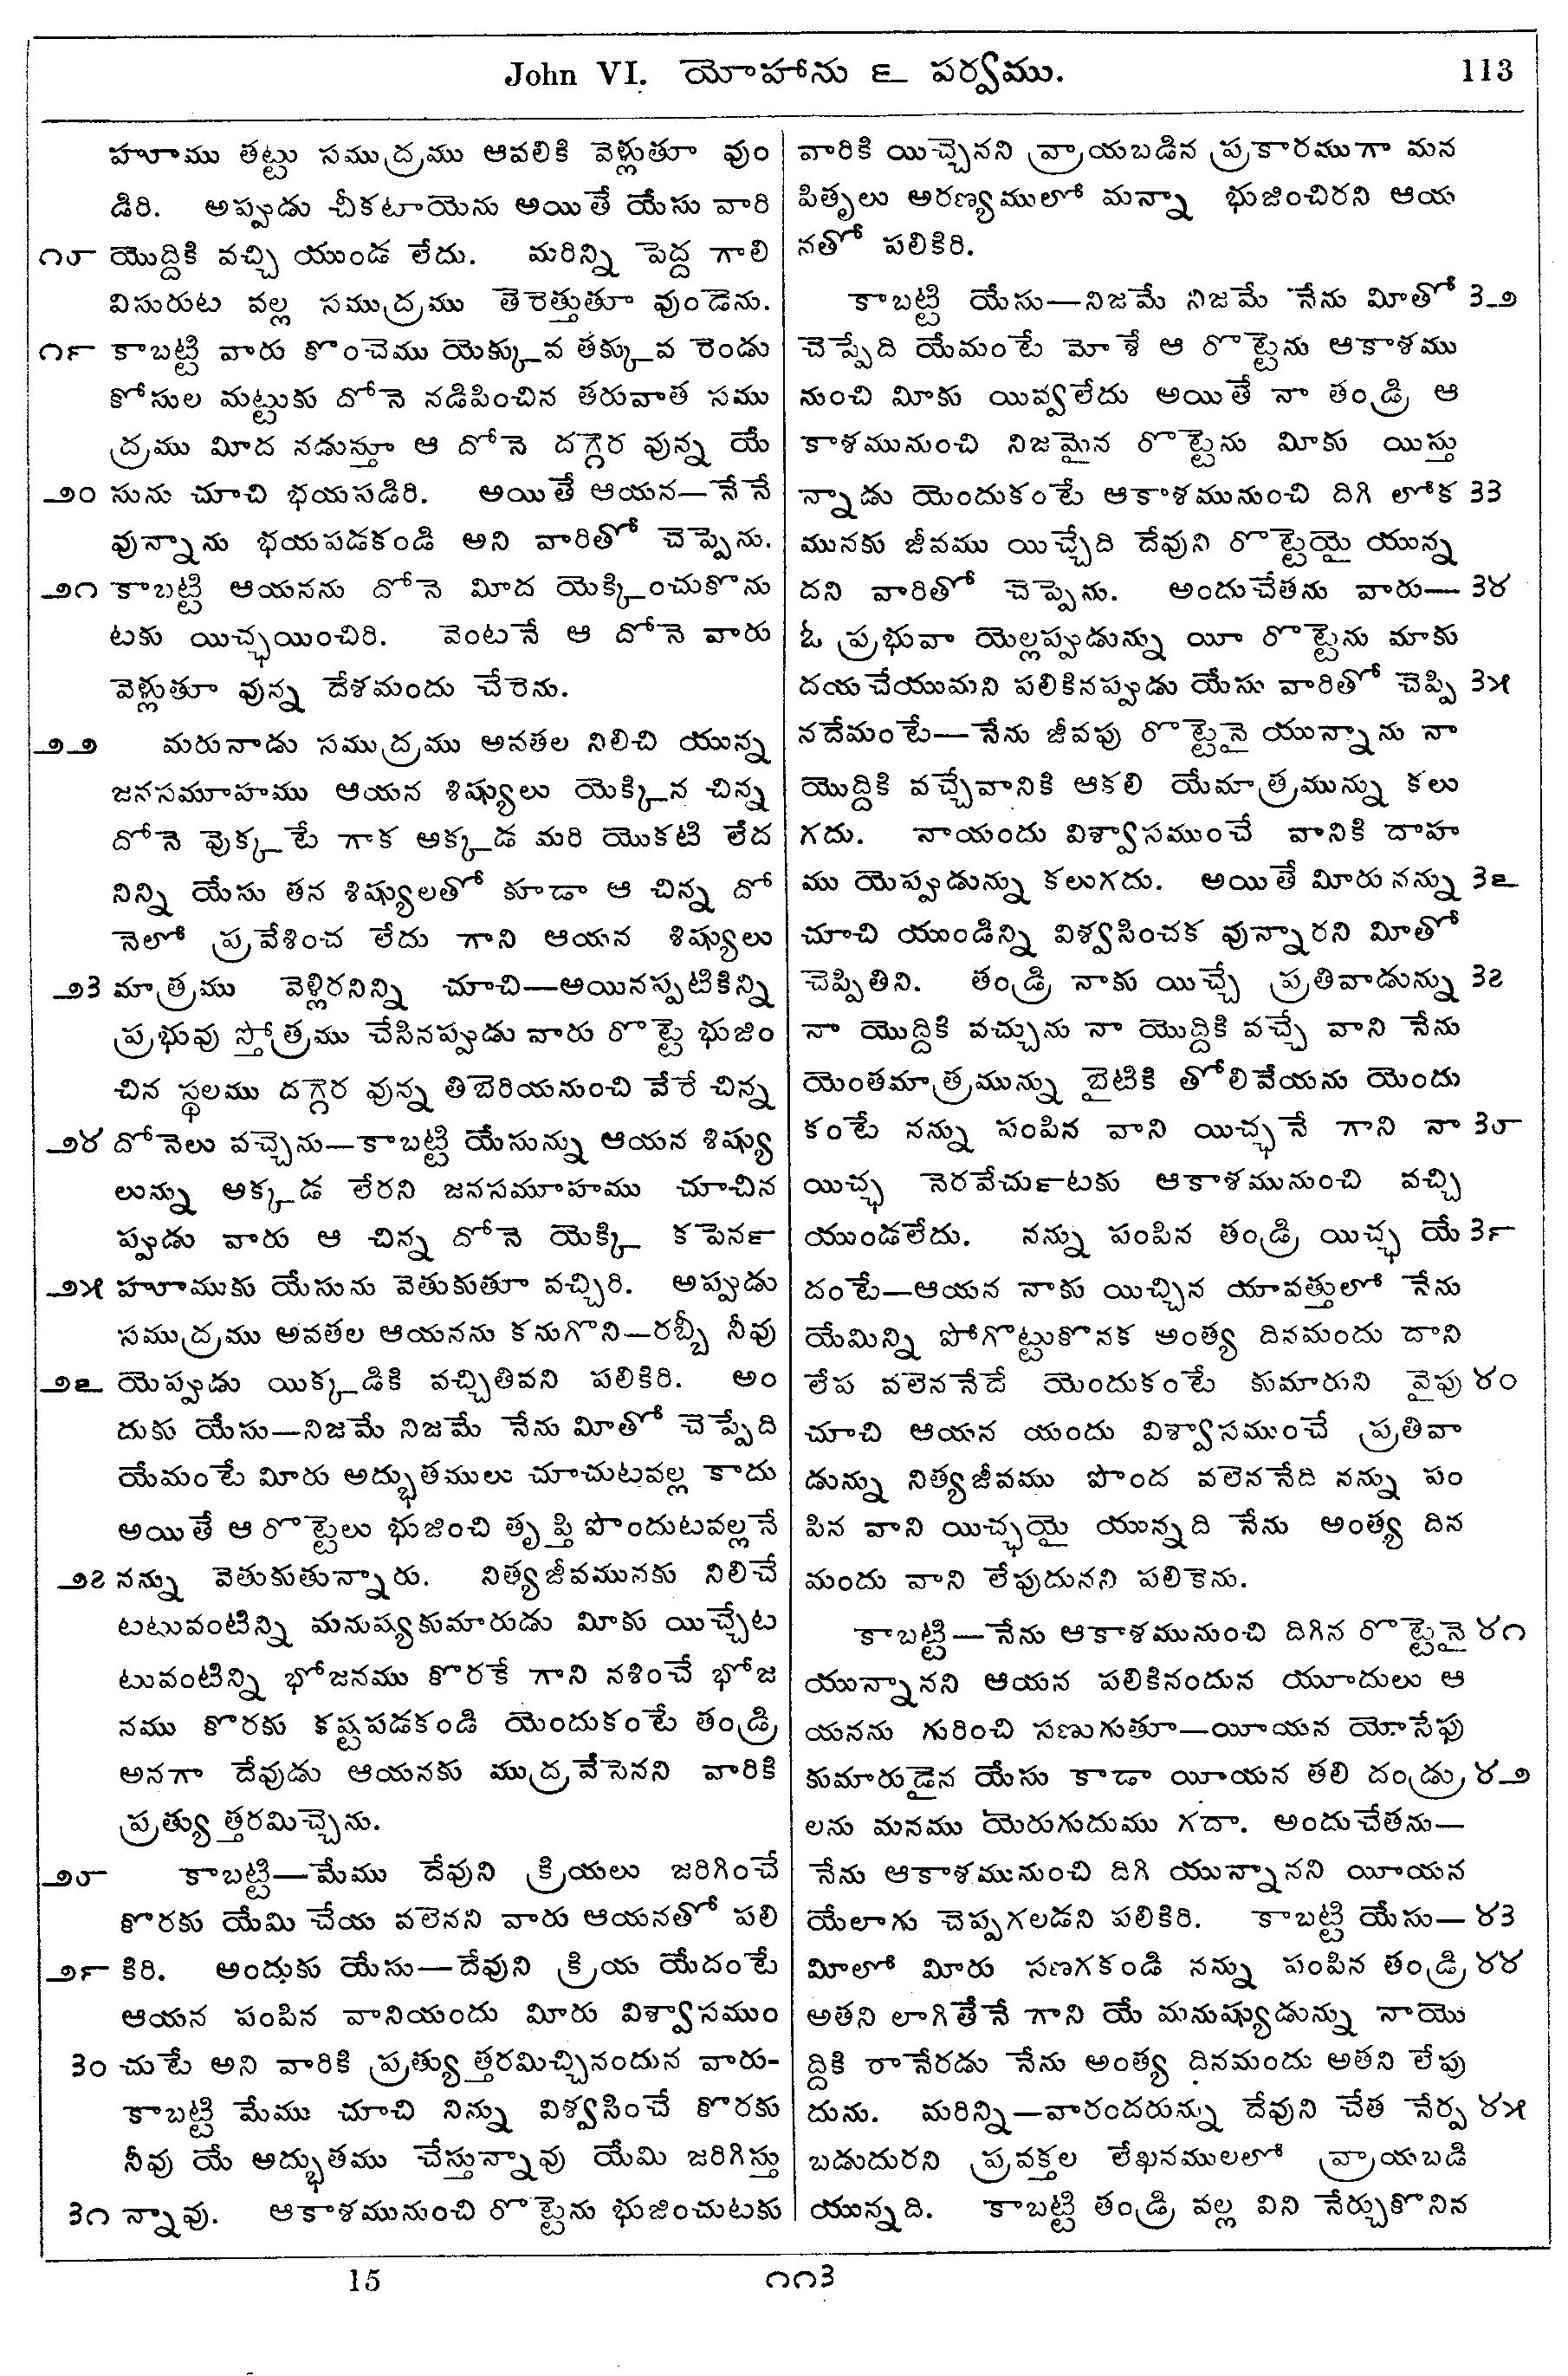 John VI. యోహాను ౬ పర్వము. 113
హూము తట్టు సముద్రము ఆవలికి వెళ్లుతూ వుం
డిరి. అప్పుడు చీకటాయెను అయితే యేసు వారి
౧౮ యొద్దికి వచ్చి యుండ లేదు. మరిన్ని పెద్ద గాలి
విసురుట వల్ల సముద్రము తెరెత్తుతూ వుండెను.
౧౯ కాబట్టి వారు కొంచెము యెక్కువ తక్కువ రెండు
కోసుల మట్టుకు దోనె నడిపించిన తరువాత సము
ద్రము మీద నడుస్తూ ఆ దోనె దగ్గెర వున్న యే
౨౦ సును చూచి భయపడిరి. అయితే ఆయన—నేనే
వున్నాను భయపడకండి అని వారితో చెప్పెను.
౨౧ కాబట్టి ఆయనను దోనె మీద యెక్కించుకొను
టకు యిచ్ఛయించిరి. వెంటనే ఆ దోనె వారు
వెళ్లుతూ వున్న దేశమందు చేరెను.
౨౨ మరునాడు సముద్రము అవతల నిలిచి యున్న
జనసమూహము ఆయన శిష్యులు యెక్కిన చిన్న
దోనె వుక్కటే గాక అక్కడ మరి యొకటి లేద
నిన్ని యేసు తన శిష్యులతో కూడా ఆ చిన్న దో
నెలో ప్రవేశించ లేదు గాని ఆయన శిష్యులు
౨౩ మాత్రము వెళ్లిరనిన్ని చూచి—అయినప్పటికిన్ని
ప్రభువు స్తోత్రము చేసినప్పుడు వారు రొట్టె భుజిం
చిన స్థలము దగ్గెర వున్న తిబెరియనుంచి వేరే చిన్న
౨౪ దోనెలు వచ్చెను—కాబట్టి యేసున్ను ఆయన శిష్యు
లున్ను అక్కడ లేరని జనసమూహము చూచిన
ప్పుడు వారు ఆ చిన్న దోనె యెక్కి కపెనఁ
౨౫ హూముకు యేసును వెతుకుతూ వచ్చిరి. అప్పుడు
సముద్రము అవతల ఆయనను కనుగొని—రబ్బీ నీవు
౨౬ యెప్పుడు యిక్కడికి వచ్చితివని పలికిరి. అం
దుకు యేసు—నిజమే నిజమే నేను మీతో చెప్పేది
యేమంటే మీరు అద్భుతములు చూచుటవల్ల కాదు
అయితే ఆ రొట్టెలు భుజించి తృప్తి పొందుటవల్లనే
౨౭ నన్ను వెతుకుతున్నారు. నిత్యజీవమునకు నిలిచే
టటువంటిన్ని మనుష్యకుమారుడు మీకు యిచ్చేట
టువంటిన్ని భోజనము కొరకే గాని నశించే భోజ
నము కొరకు కష్టపడకండి యెందుకంటే తండ్రి
అనగా దేవుడు ఆయనకు ముద్రవేసెనని వారికి
ప్రత్యుత్తరమిచ్చెను.
౨౮ కాబట్టి—మేము దేవుని క్రియలు జరిగించే
కొరకు యేమి చేయ వలెనని వారు ఆయనతో పలి
౨౯ కిరి. అందుకు యేసు—దేవుని క్రియ యేదంటే
ఆయన పంపిన వానియందు మీరు విశ్వాసముం
౩౦ చుటే అని వారికి ప్రత్యుత్తరమిచ్చినందున వారు-
కాబట్టి మేము చూచి నిన్ను విశ్వసించే కొరకు
నీవు యే అద్భుతము చేస్తున్నావు యేమి జరిగిస్తు
౩౧ న్నావు. ఆకాశమునుంచి రొట్టెను భుజించుటకు
వారికి యిచ్చెనని వ్రాయబడిన ప్రకారముగా మన
పితృలు అరణ్యములో మన్నా భుజించిరని ఆయ
నతో పలికిరి.
కాబట్టి యేసు—నిజమే నిజమే నేను మీతో ౩౨
చెప్పేది యేమంటే మోశే ఆ రొట్టెను ఆకాశము
నుంచి మీకు యివ్వలేదు అయితే నా తండ్రి ఆ
కాశమునుంచి నిజమైన రొట్టెను మీకు యిస్తు
న్నాడు యెందుకంటే ఆకాశమునుంచి దిగి లోక ౩౩
మునకు జీవము యిచ్చేది దేవుని రొట్టెయై యున్న
దని వారితో చెప్పెను. అందుచేతను వారు— ౩౪
ఓ ప్రభువా యెల్లప్పుడున్ను యీ రొట్టెను మాకు
దయచేయుమని పలికినప్పుడు యేసు వారితో చెప్పి ౩౫
నదేమంటే—నేను జీవపు రొట్టెనై యున్నాను నా
యొద్దికి వచ్చేవానికి ఆకలి యేమాత్రమున్ను కలు
గదు. నాయందు విశ్వాసముంచే వానికి దాహ
ము యెప్పుడున్ను కలుగదు. అయితే మీరు నన్ను ౩౬
చూచి యుండిన్ని విశ్వసించక వున్నారని మీతో
చెప్పితిని. తండ్రి నాకు యిచ్చే ప్రతివాడున్ను ౩౭
నా యొద్దికి వచ్చును నా యొద్దికి వచ్చే వాని నేను
యెంతమాత్రమున్ను బైటికి తోలివేయను యెందు
కంటే నన్ను పంపిన వాని యిచ్ఛనే గాని నా ౩౮
యిచ్ఛ నెరవేచుఁటకు ఆకాశమునుంచి వచ్చి
యుండలేదు. నన్ను పంపిన తండ్రి యిచ్ఛ యే ౩౯
దంటే—ఆయన నాకు యిచ్చిన యావత్తులో నేను
యేమిన్ని పోగొట్టుకొనక అంత్య దినమందు దాని
లేప వలెననేదే యెందుకంటే కుమారుని వైపు ౪౦
చూచి ఆయన యందు విశ్వాసముంచే ప్రతివా
డున్ను నిత్యజీవము పొంద వలెననేది నన్ను పం
పిన వాని యిచ్ఛయై యున్నది నేను అంత్య దిన
మందు వాని లేపుదునని పలికెను.
కాబట్టి—నేను ఆకాశమునుంచి దిగిన రొట్టెనై ౪౧
యున్నానని ఆయన పలికినందున యూదులు ఆ
యనను గురించి సణుగుతూ—యీయన యోసేపు
కుమారుడైన యేసు కాడా యీయన తలి దండ్రు ౪౨
లను మనము యెరుగుదుము గదా. అందుచేతను—
నేను ఆకాశమునుంచి దిగి యున్నానని యీయన
యేలాగు చెప్పగలడని పలికిరి. కాబట్టి యేసు— ౪౩
మీలో మీరు సణగకండి నన్ను పంపిన తండ్రి ౪౪
అతని లాగితేనే గాని యే మనుష్యుడున్ను నాయొ
ద్దికి రానేరడు నేను అంత్య దినమందు అతని లేపు
దును. మరిన్ని—వారందరున్ను దేవుని చేత నేర్ప ౪౫
బడుదురని ప్రవక్తల లేఖనములలో వ్రాయబడి
యున్నది. కాబట్టి తండ్రి వల్ల విని నేర్చుకొనిన
15 ౧౧౩